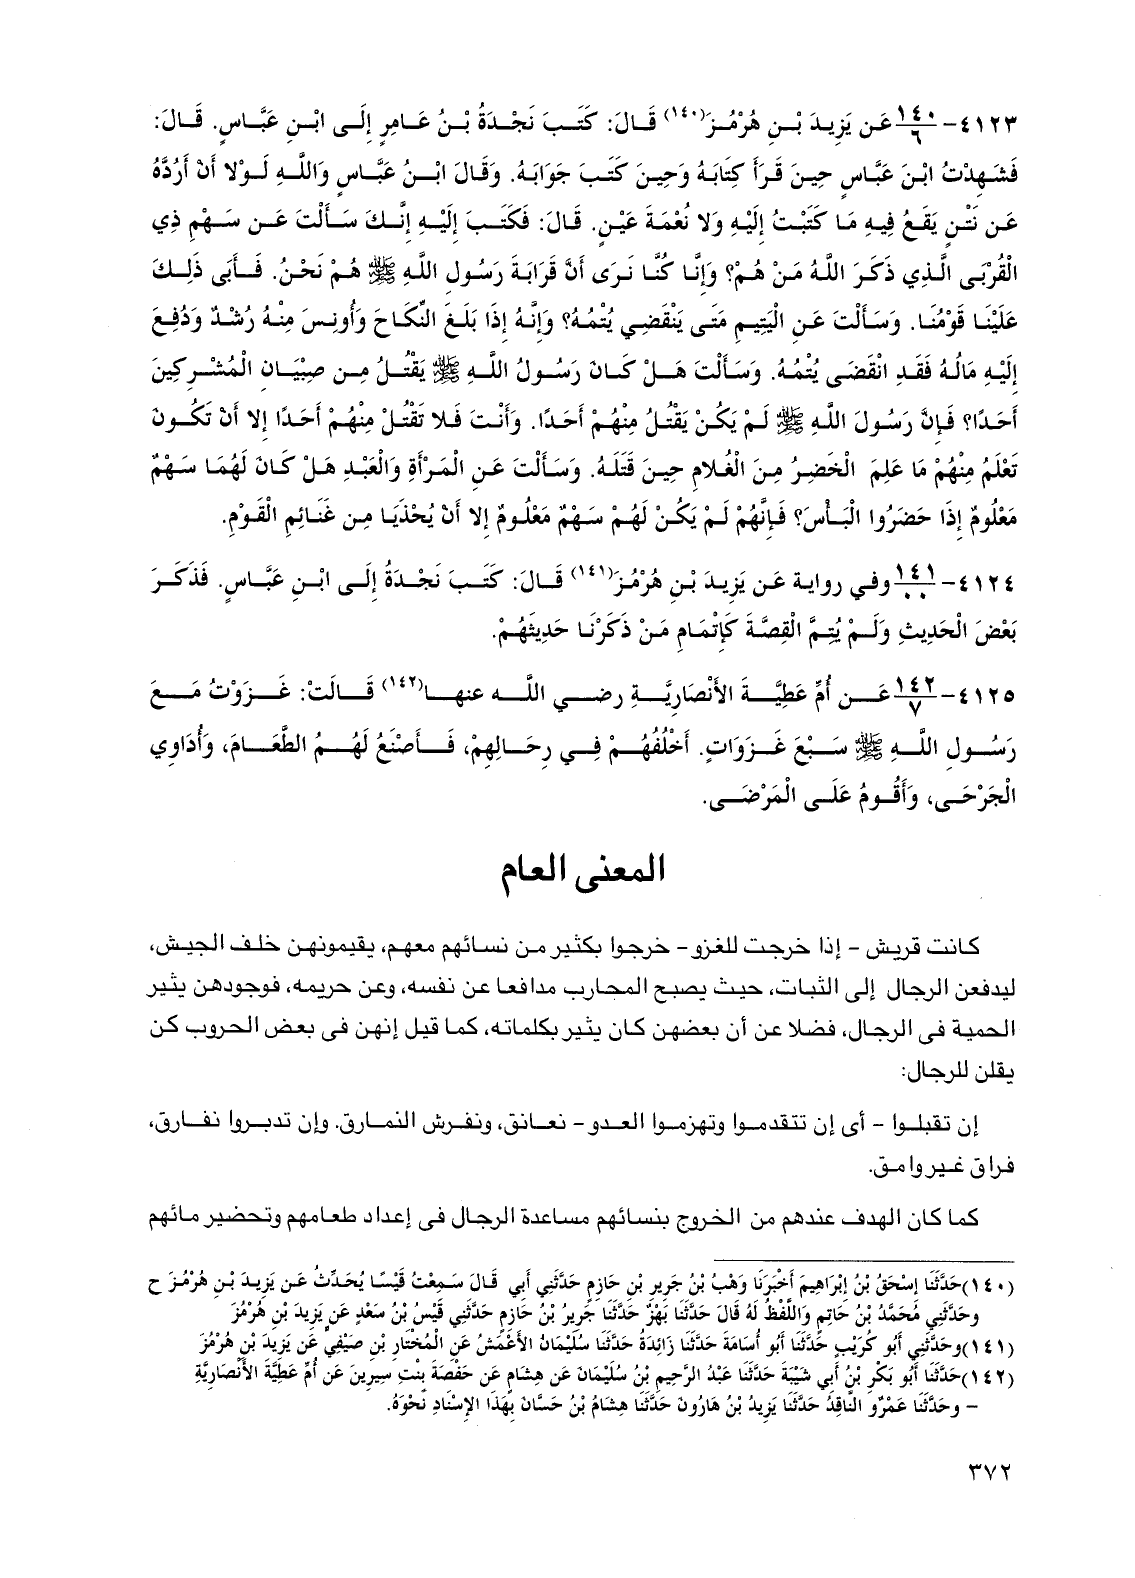 ٤١٢٣- ١٤٠/٦ عَن يَزِيدَ بْنِ هُرْمُزَ(١٤٠) قَالَ: كَتَبَ نَجْدَةُ بْنُ عَامِرٍ إِلَى ابْنِ عَبَّاسٍ. قَالَ:
فَشَهِدْتُ ابْنَ عَبَّاسٍ حِينَ قَرَأَ كِتَابَهُ وَحِينَ كَتَبَ جَوَابَهُ. وَقَالَ ابْنُ عَبَّاسٍ وَاللَّهِ لَوْلا أَنْ أَرُدَّهُ
عَن نَتْنٍ يَقَعُ فِيهِ مَا كَتَبْتُ إِلَيْهِ وَلا نُعْمَةَ عَيْنٍ. قَالَ: فَكَتَبَ إِلَيْهِ إِنَّكَ سَأَلْتَ عَن سَهْمِ ذِي
الْقُرْبَى الَّذِي ذَكَرَ اللَّهُ مَنْ هُمْ؟ وَإِنَّا كُنَّا نَرَى أَنَّ قَرَابَةَ رَسُولِ اللَّهِ ﷺ هُمْ نَحْنُ. فَأَبَى ذَلِكَ
عَلَيْنَا قَوْمُنَا. وَسَأَلْتَ عَنِ الْيَتِيمِ مَتَى يَنْقَضِي يُتْمُهُ؟ وَإِنَّهُ إِذَا بَلَغَ النِّكَاحَ وَأُونِسَ مِنْهُ رُشْدٌ وَدُفِعَ
إِلَيْهِ مَالُهُ فَقَدِ انْقَضَى يُتْمُهُ. وَسَأَلْتَ هَلْ كَانَ رَسُولُ اللَّهِ ﷺ يَقْتُلُ مِن صِبْيَانِ الْمُشْرِكِينَ
أَحَدًا؟ فَإِنَّ رَسُولَ اللَّهِ ﷺ لَمْ يَكُنْ يَقْتُلُ مِنْهُمْ أَحَدًا. وَأَنْتَ فَلا تَقْتُلْ مِنْهُمْ أَحَدًا إِلا أَنْ تَكُونَ
تَعْلَمُ مِنْهُمْ مَا عَلِمَ الْخَضِرُ مِنَ الْغُلامِ حِينَ قَتَلَهُ. وَسَأَلْتَ عَنِ الْمَرْأَةِ وَالْعَبْدِ هَلْ كَانَ لَهُمَا سَهْمٌ
مَعْلُومٌ إِذَا حَضَرُوا الْبَأْسَ؟ فَإِنَّهُمْ لَمْ يَكُنْ لَهُمْ سَهْمٌ مَعْلُومٌ إِلا أَنْ يُحْذَيَا مِن غَنَائِمِ الْقَوْمِ.
٤١٢٤- ١٤١/٠٠ وفي رواية عَن يَزِيدَ بْنِ هُرْمُزَ(١٤١) قَالَ: كَتَبَ نَجْدَةُ إِلَى ابْنِ عَبَّاسٍ. فَذَكَرَ
بَعْضَ الْحَدِيثِ وَلَمْ يُتِمَّ الْقِصَّةَ كَإِتْمَامِ مَنْ ذَكَرْنَا حَدِيثَهُمْ.
٤١٢٥- ١٤٢/٧ عَن أُمِّ عَطِيَّةَ الأَنْصَارِيَّةِ رضي الله عنها(١٤٢) قَالَتْ: غَزَوْتُ مَعَ
رَسُولِ اللَّهِ ﷺ سَبْعَ غَزَوَاتٍ. أَخْلُفُهُمْ فِي رِحَالِهِمْ، فَأَصْنَعُ لَهُمُ الطَّعَامَ، وَأُدَاوِي
الْجَرْحَى، وَأَقُومُ عَلَى الْمَرْضَى.
المعنى العام
كانت قريش - إذا خرجت للغزو- خرجوا بكثير من نسائهم معهم، يقيمونهن خلف الجيش،
ليدفعن الرجال إلى الثبات، حيث يصبح المحارب مدافعا عن نفسه، وعن حريمه، فوجودهن يثير
الحمية فى الرجال، فضلا عن أن بعضهن كان يثير بكلماته، كما قيل إنهن فى بعض الحروب كن
يقلن للرجال:
إن تقبلوا - أى إن تتقدموا وتهزموا العدو- نعانق، ونفرش النمارق. وإن تدبروا نفارق،
فراق غير وامق.
كما كان الهدف عندهم من الخروج بنسائهم مساعدة الرجال فى إعداد طعامهم وتحضير مائهم
(١٤٠)حَدَّثَنَا إِسْحَقُ بْنُ إِبْرَاهِيمَ أَخْبَرَنَا وَهْبُ بْنُ جَرِيرِ بْنِ حَازِمٍ حَدَّثَنِي أَبِي قَالَ سَمِعْتُ قَيْسًا يُحَدِّثُ عَن يَزِيدَ بْنِ هُرْمُزَ ح
وحَدَّثَنِي مُحَمَّدُ بْنُ حَاتِمٍ وَاللَّفْظُ لَهُ قَالَ حَدَّثَنَا بَهْزٌ حَدَّثَنَا جَرِيرُ بْنُ حَازِمٍ حَدَّثَنِي قَيْسُ بْنُ سَعْدٍ عَن يَزِيدَ بْنِ هُرْمُزَ
(١٤١)وحَدَّثَنِي أَبُو كُرَيْبٍ حَدَّثَنَا أَبُو أُسَامَةَ حَدَّثَنَا زَائِدَةُ حَدَّثَنَا سُلَيْمَانُ الأَعْمَشُ عَنِ الْمُخْتَارِ بْنِ صَيْفِيٍّ عَن يَزِيدَ بْنِ هُرْمُزَ
(١٤٢)حَدَّثَنَا أَبُو بَكْرِ بْنُ أَبِي شَيْبَةَ حَدَّثَنَا عَبْدُ الرَّحِيمِ بْنُ سُلَيْمَانَ عَن هِشَامٍ عَن حَفْصَةَ بِنْتِ سِيرِينَ عَن أُمِّ عَطِيَّةَ الأَنْصَارِيَّةِ
- وحَدَّثَنَا عَمْرٌو النَّاقِدُ حَدَّثَنَا يَزِيدُ بْنُ هَارُونَ حَدَّثَنَا هِشَامُ بْنُ حَسَّانَ بِهَذَا الإِسْنَادِ نَحْوَهُ.
٣٧٢